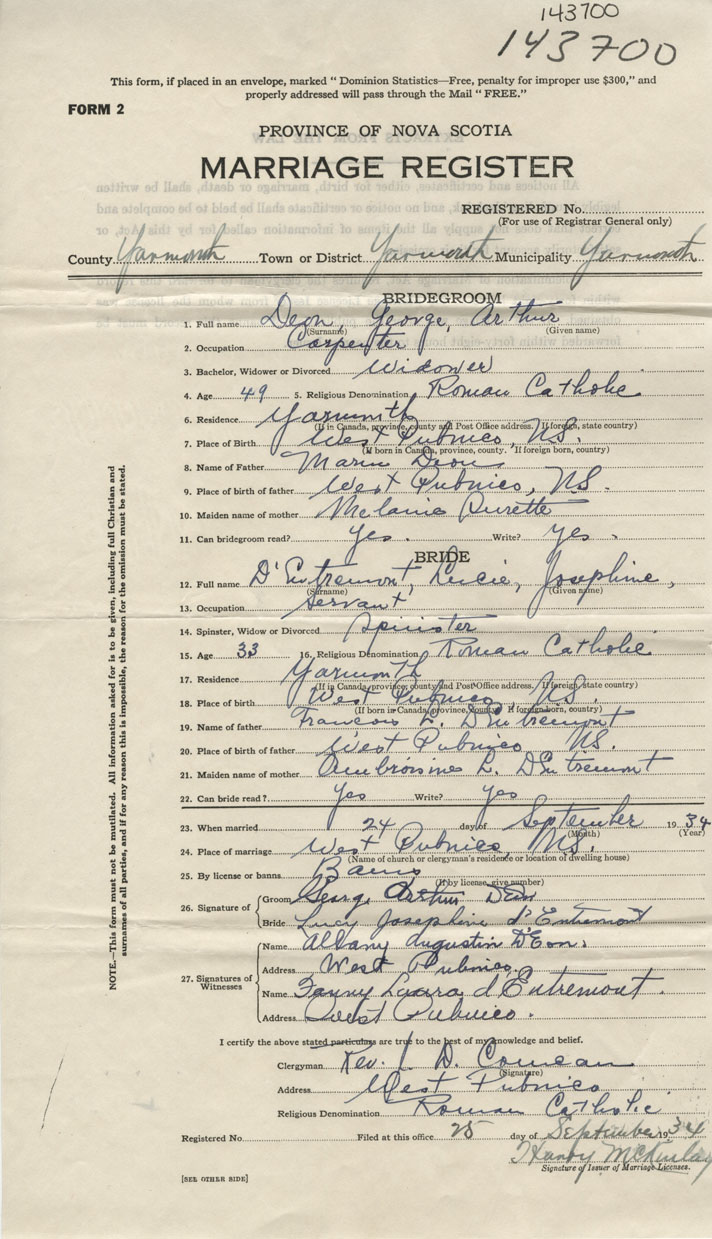 143700
143700
This form, if placed in an envelope, marked "Dominion Statistics—Free, penalty for improper use $300," and
properly addressed will pass through the Mail "FREE."
FORM 2
PROVINCE OF NOVA SCOTIA
MARRIAGE REGISTER
REGISTERED No.
(For use of Registrar General only)
County Yarmouth Town or District Yarmouth Municipality Yarmouth
BRIDEGROOM
1. Full name Deon, George, Arthur
(Surname) (Given name)
2. Occupation Carpenter
3. Bachelor, Widower or Divorced Widower
4. Age 49 5. Religious Denomination Roman Catholic
6. Residence Yarmouth
(If in Canada, province, county and Post Office address. If foreign, state country)
7. Place of Birth West Pubnico, N.S.
(If born in Canada, province, county. If foreign born, country)
8. Name of Father Deon
9. Place of birth of father West Pubnico, N.S.
10. Maiden name of mother Melanie Surette
11. Can bridegroom read? Yes. Write? Yes.
BRIDE
12. Full name D'Entremont, Lucie, Josephine,
(Surname) (Given name)
13. Occupation Servant
14. Spinster, Widow or Divorced Spinster
15. Age 33 16. Religious Denomination Roman Catholic
17. Residence Yarmouth
(If in Canada, province, county and Post Office address. If foreign, state country)
18. Place of birth West Pubnico, N.S.
(If born in Canada, province, county. If foreign born, country)
19. Name of father Francois L. D'Entremont
20. Place of birth of father West Pubnico N.S.
21. Maiden name of mother L. D'Entremont
22. Can bride read? Yes Write? Yes
23. When married 24 day of September 1934
(Month) (Year)
24. Place of marriage West Pubnico, N.S.
(Name of church or clergyman's residence or location of dwelling house)
25. By license or banns Banns
(If by license, give number)
26. Signature of Groom George Arthur Deon
Bride Lucy Josephine d'Entremont
27. Signatures of Witnesses
Name Albany Augustin D'Eon.
Address West Pubnico.
Name Fanny Laura d'Entremont.
Address West Pubnico.
I certify the above stated particulars are true to the best of my knowledge and belief.
Clergyman Rev. D. Comeau
(Signature)
Address West Pubnico
Religious Denomination Roman Catholic
Registered No. Filed at this office 25 day of September 1934
Harvey McKinlay
Signature of Issuer of Marriage Licenses.
[SEE OTHER SIDE]
NOTE.—This form must not be mutilated. All information asked for is to be given, including full Christian and
surnames of all parties, and if for any reason this is impossible, the reason for the omission must be stated.